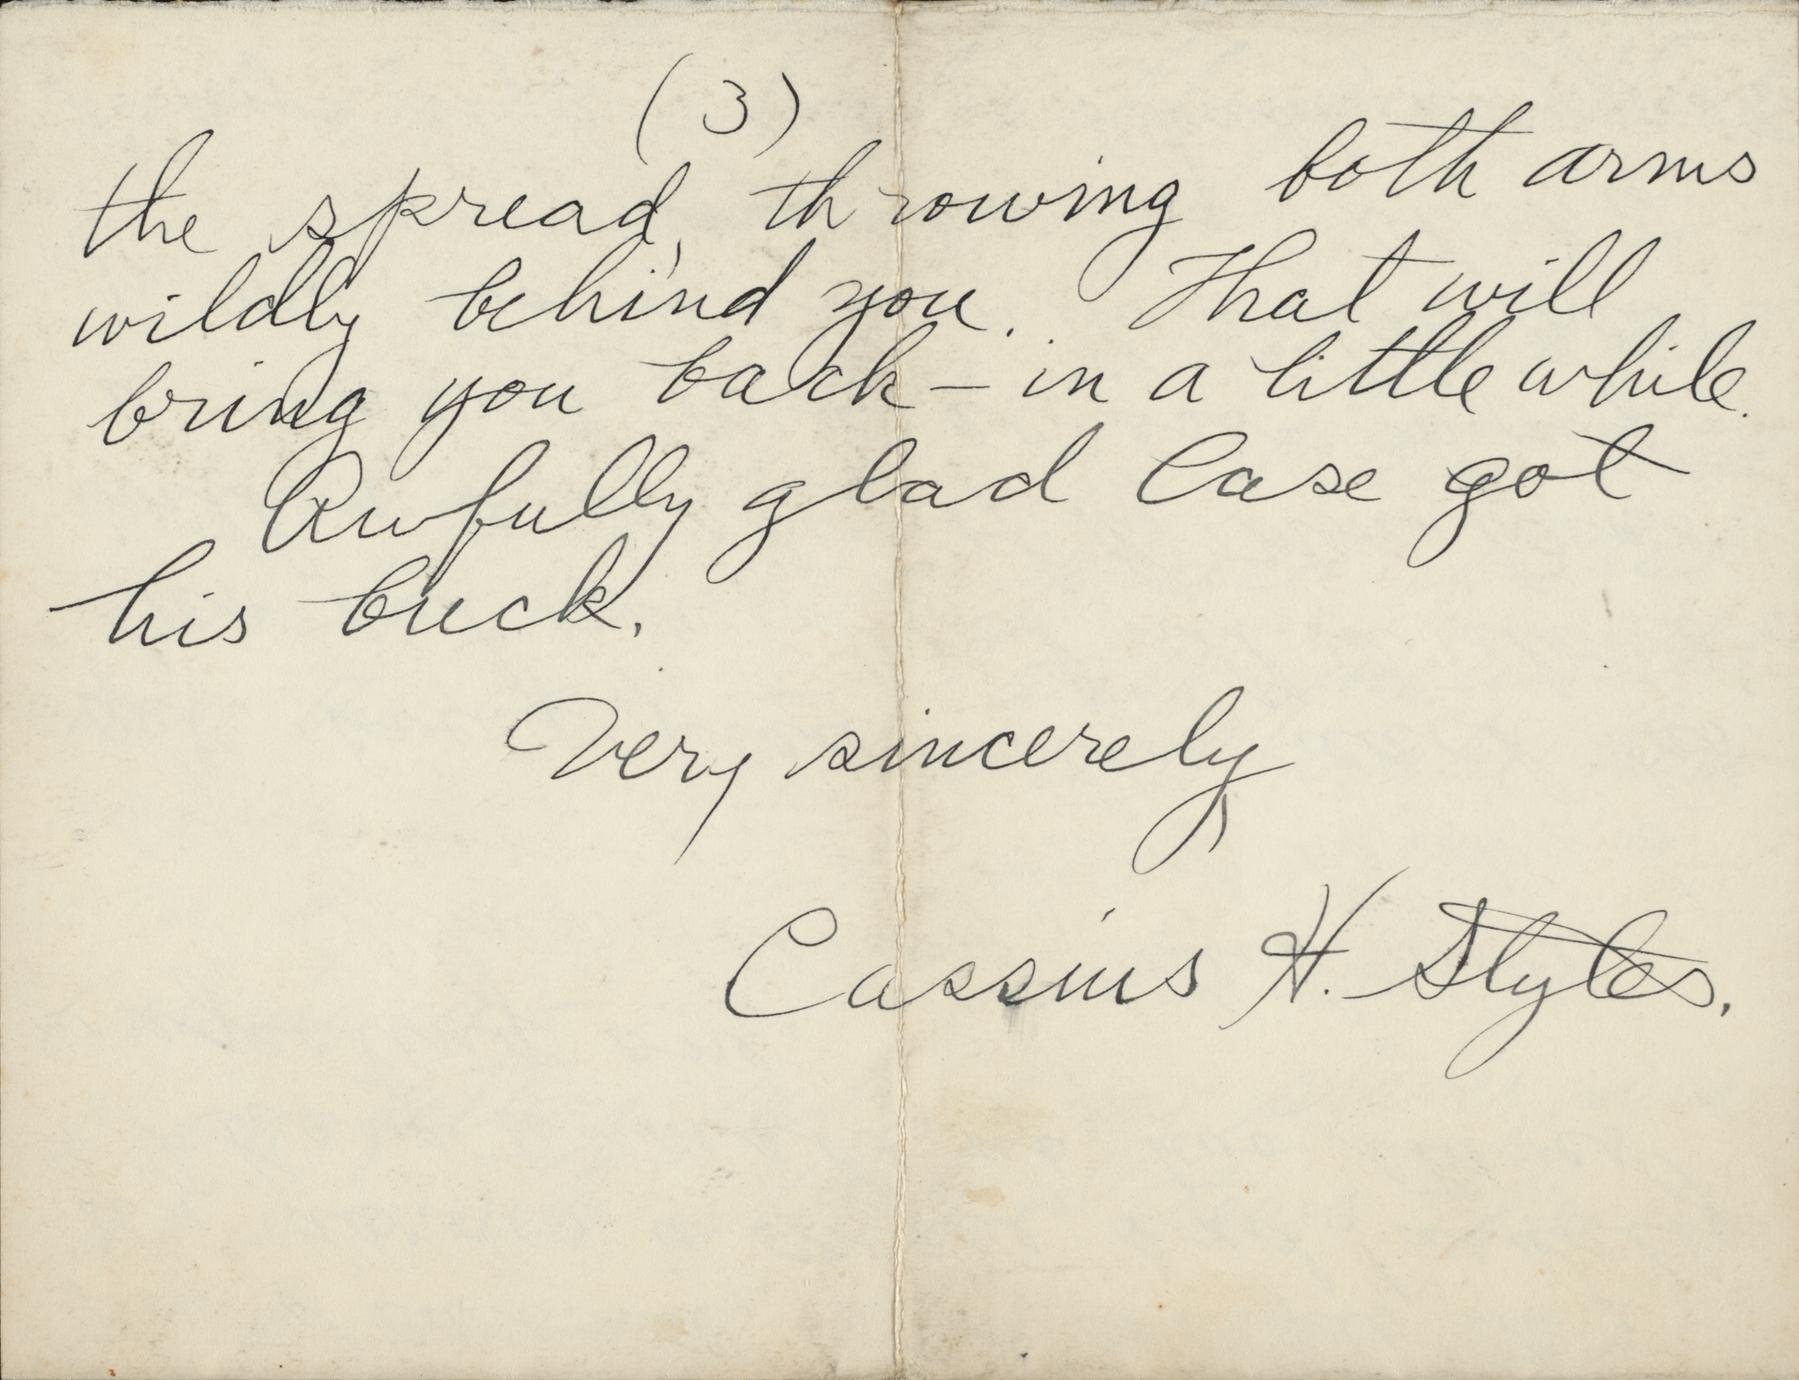 (3)
the spread, throwing both arms
wildly behind you. That will
bring you back – in a little while.
Awfully glad Case got
his buck.
Very sincerely,
Cassius H. Styles.